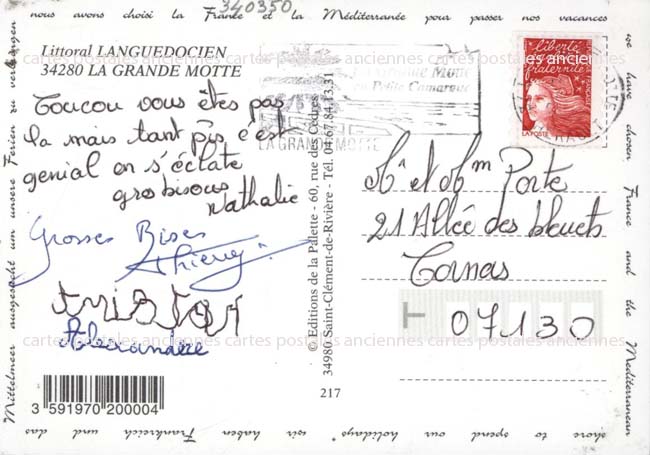 340350
nous avons choisi la France et la Méditerranée pour passer nos vacances
we have chosen France and the Mediterranean
shore to spend our holidays" wir haben Frankreich und das
Mittelmeer ausgesucht um unsere Ferien zu verbringen
Littoral LANGUEDOCIEN
34280 LA GRANDE MOTTE
Coucou vous êtes pas
la mais tant pis c'est
genial on s'éclate
gros bisous
Nathalie
Grosses Bises
Thierry
tristan
Alexandre
3 591970 200004
© Editions de la Palette - 60, rue des Cèdres
34980 Saint-Clément-de-Rivière - Tél. 04.67.84.13.31
217
La Grande Motte
en Petite Camargue
LA GRANDE MOTTE
liberté
fraternité
LA POSTE
Mr et Mm Porte
21 Allée des bleuets
Cornas
07130
cartes postales anciennes cartes postales anciennes cartes postales anciennes
cartes postales anciennes cartes postales anciennes cartes postales anciennes